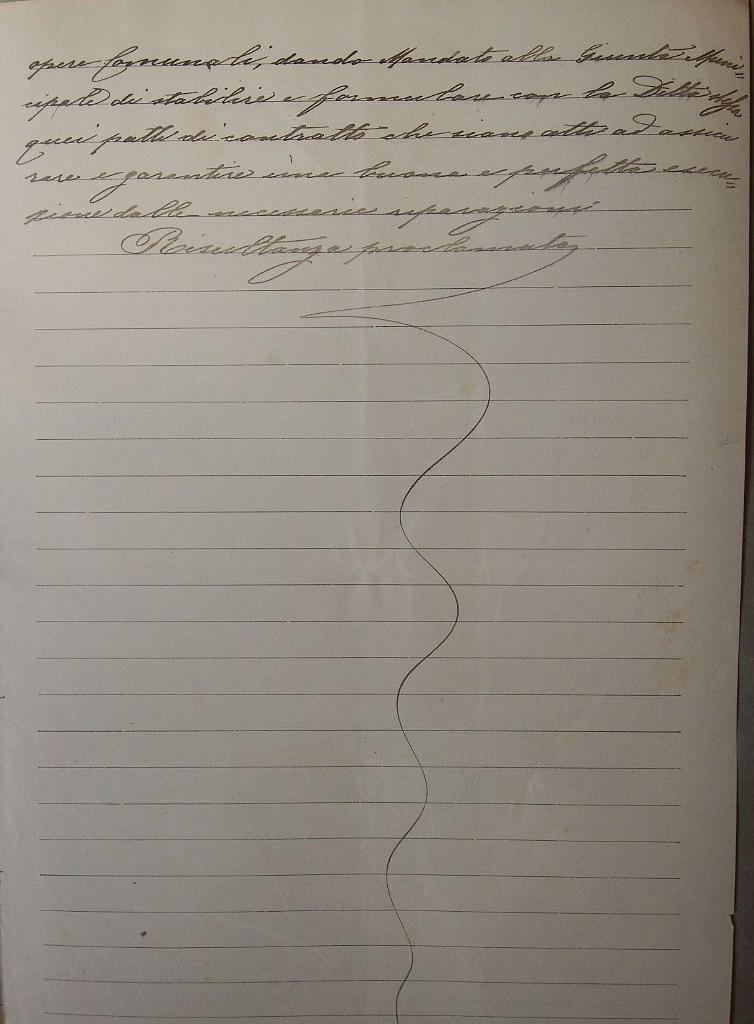 opere Comunali, dando Mandato alla Giunta Muni=
cipale di stabilire e formulare con la Ditta stessa
quei patti di contratto che siano atti ad assicu
rare e garantire una buona e perfetta esecu=
zione delle necessarie riparazioni
Risultanza proclamata